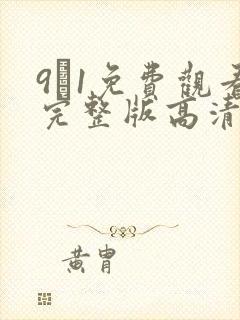 9 1免費觀看
完整版高清
黃胄